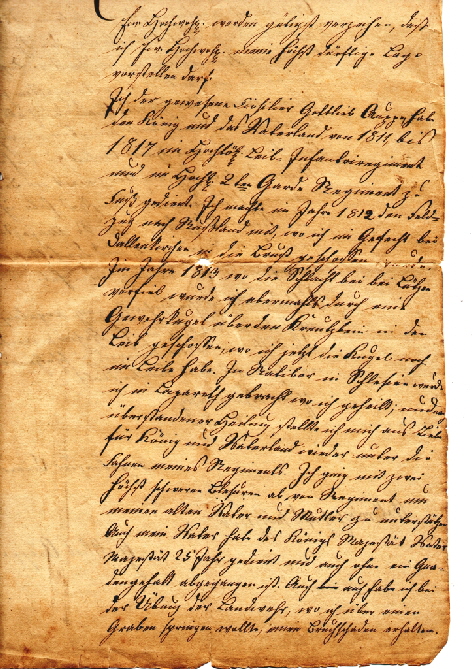 Ew. Hochwohlg. werden gütigst verzeihen, daß
ich Ew. Hochwohlg. meine höchst dürftige Lage
vorstellen darf.
Ich der gewesene Füsilier Gottlieb habe
den König und das Vaterland von 1811 bis
1817 im Hochlöbl. Leib Infanterieregiment
und im Hochl. 2ten Garde Regiment zu
Fuß gedient. Ich machte im Jahre 1812 den Feld-
zug nach Rußland mit, wo ich im Gefecht bei
in die Brust geschossen wurde
Im Jahre 1813 wo die Schlacht bei
vorfiel wurde ich abermahls durch eine
Gewehrkugel über den in den
Leib geschossen, wo ich jetzt die Kugel noch
im Leibe habe. In in Schlesien wurde
ich in Lazareth gebracht, wo ich geheilt, und nach
überstandener Heilung stellte ich mich aus Liebe
für König und Vaterland wieder unter die
Fahne meines Regiments. Ich ging mit zwei
höchst schweren Blesuren ab von Regiment um
meinen alten Vater und Mutter zu unterstützen
Auch mein Vater hat des Königs Majestät
Majestät 25 Jahr gedient und auch ohne ein Gna-
dengehalt abgegangen ist. Auch habe ich bei
der Übung der Landwehr, wo ich über einen
Graben springen wollte, einen Bruchschaden erhalten.